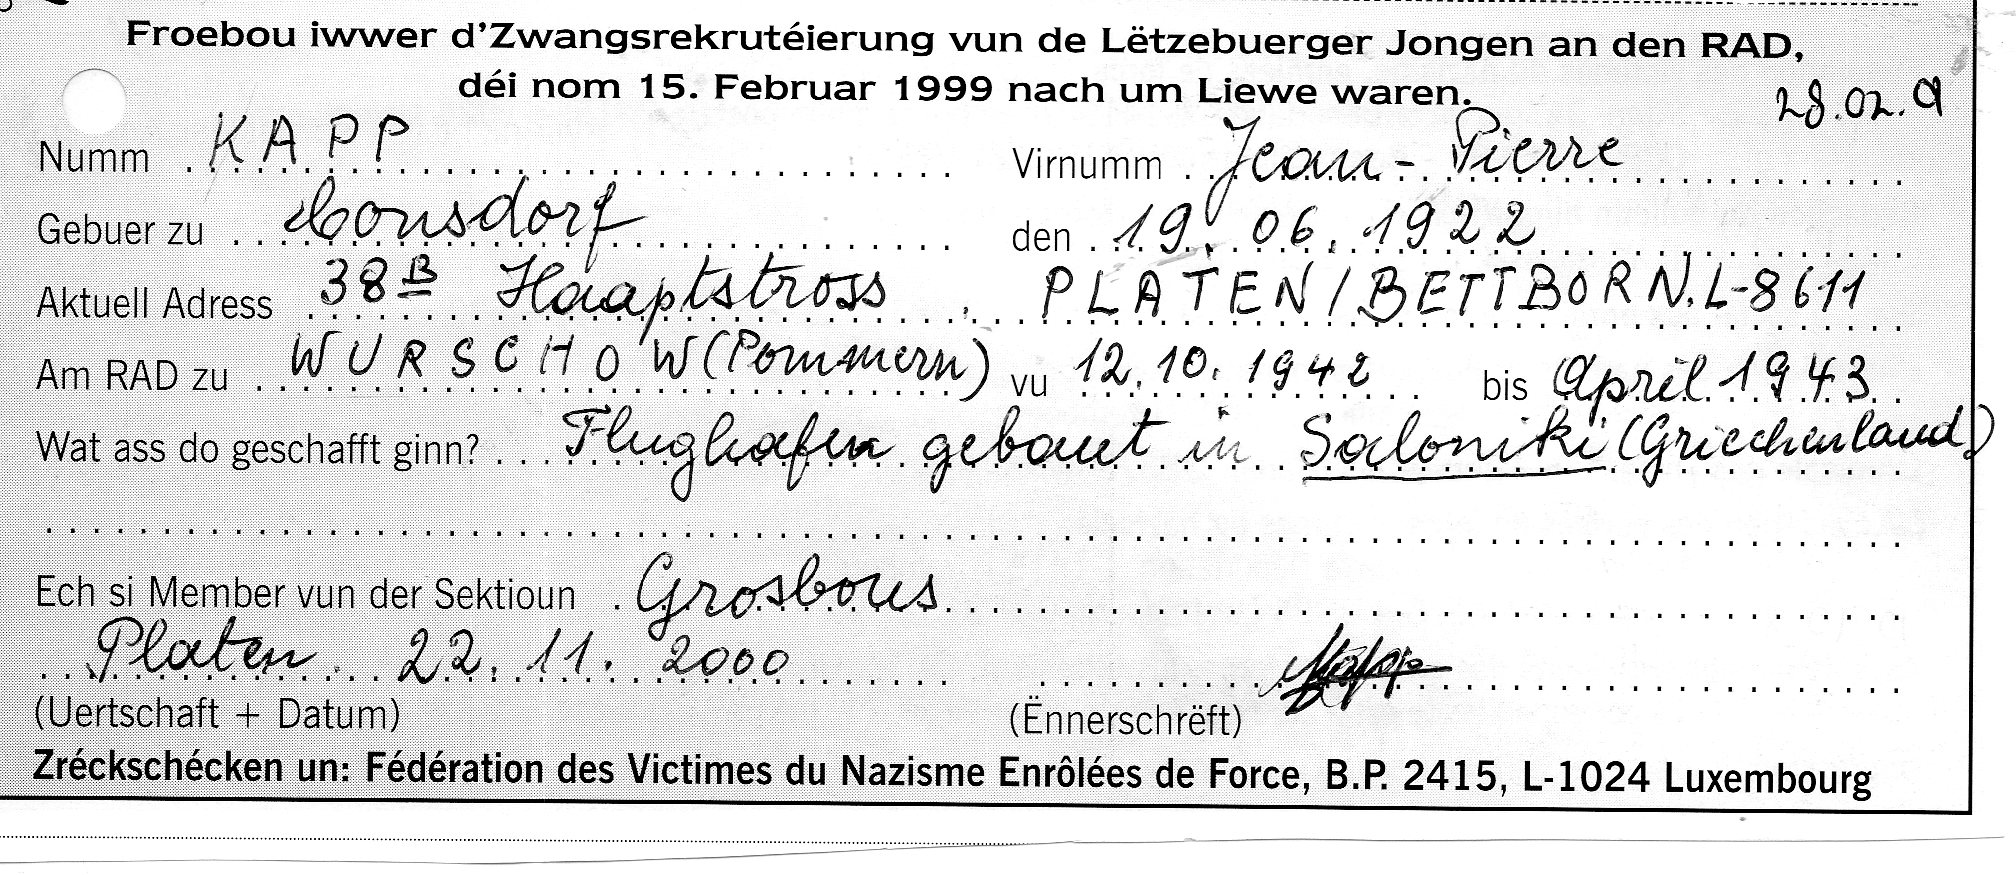 Froebou iwwer d'Zwangsrekrutéierung vun de Lëtzebuerger Jongen an den RAD,
déi nom 15. Februar 1999 nach um Liewe waren.
28.02.
Numm KAPP Virnumm Jean-Pierre
Gebuer zu Consdorf den 19.06.1922
Aktuell Adress 38B Haaptstross PLATEN/BETTBORN. L-8611
Am RAD zu WURSCHOW (Pommern) vu 12.10.1942 bis April 1943
Wat ass do geschafft ginn? Flughafen gebaut in Saloniki (Griechenland)
Ech si Member vun der Sektioun Grosbous
Platen 22.11.2000
(Uertschaft + Datum) (Ënnerschrëft)
Zréckschécken un: Fédération des Victimes du Nazisme Enrôlées de Force, B.P. 2415, L-1024 Luxembourg